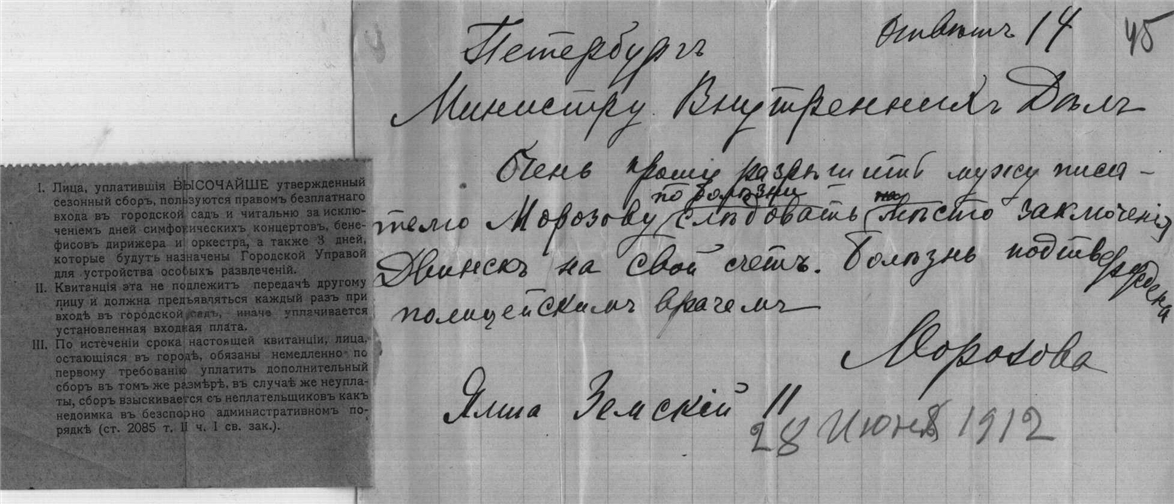 I. Лица, уплатившія ВЫСОЧАЙШЕ утвержденный
сезонный сборъ, пользуются правомъ безплатнаго
входа въ городской садъ и читальню за исклю-
ченіемъ дней симфоническихъ концертовъ, бене-
фисовъ дирижера и оркестра, а также 3 дней,
которые будутъ назначены Городской Управой
для устройства особыхъ развлеченій.
II. Квитанція эта не подлежитъ передачѣ другому
лицу и должна предъявляться каждый разъ при
входѣ въ городской садъ, иначе уплачивается
установленная входная плата.
III. По истеченіи срока настоящей квитанціи, лица,
остающіяся въ городѣ, обязаны немедленно по
первому требованію уплатить дополнительный
сборъ въ томъ же размѣрѣ, въ случаѣ же неупла-
ты, сборъ взыскивается съ неплательщиковъ какъ
недоимка въ безспорно административномъ по-
рядкѣ (ст. 2085 т. II ч. I св. зак.).
Отвѣтъ 14
45
Петербургъ
Министру Внутреннихъ Дѣлъ
Очень прошу разрѣшить мужу писа-
телю Морозову по болѣзни слѣдовать на мѣсто заключенія
Двинскъ на свой счетъ. Болѣзнь подтверждена
полицейскимъ врачемъ
Морозова
Ялта Земскій 11
28 Июня 1912